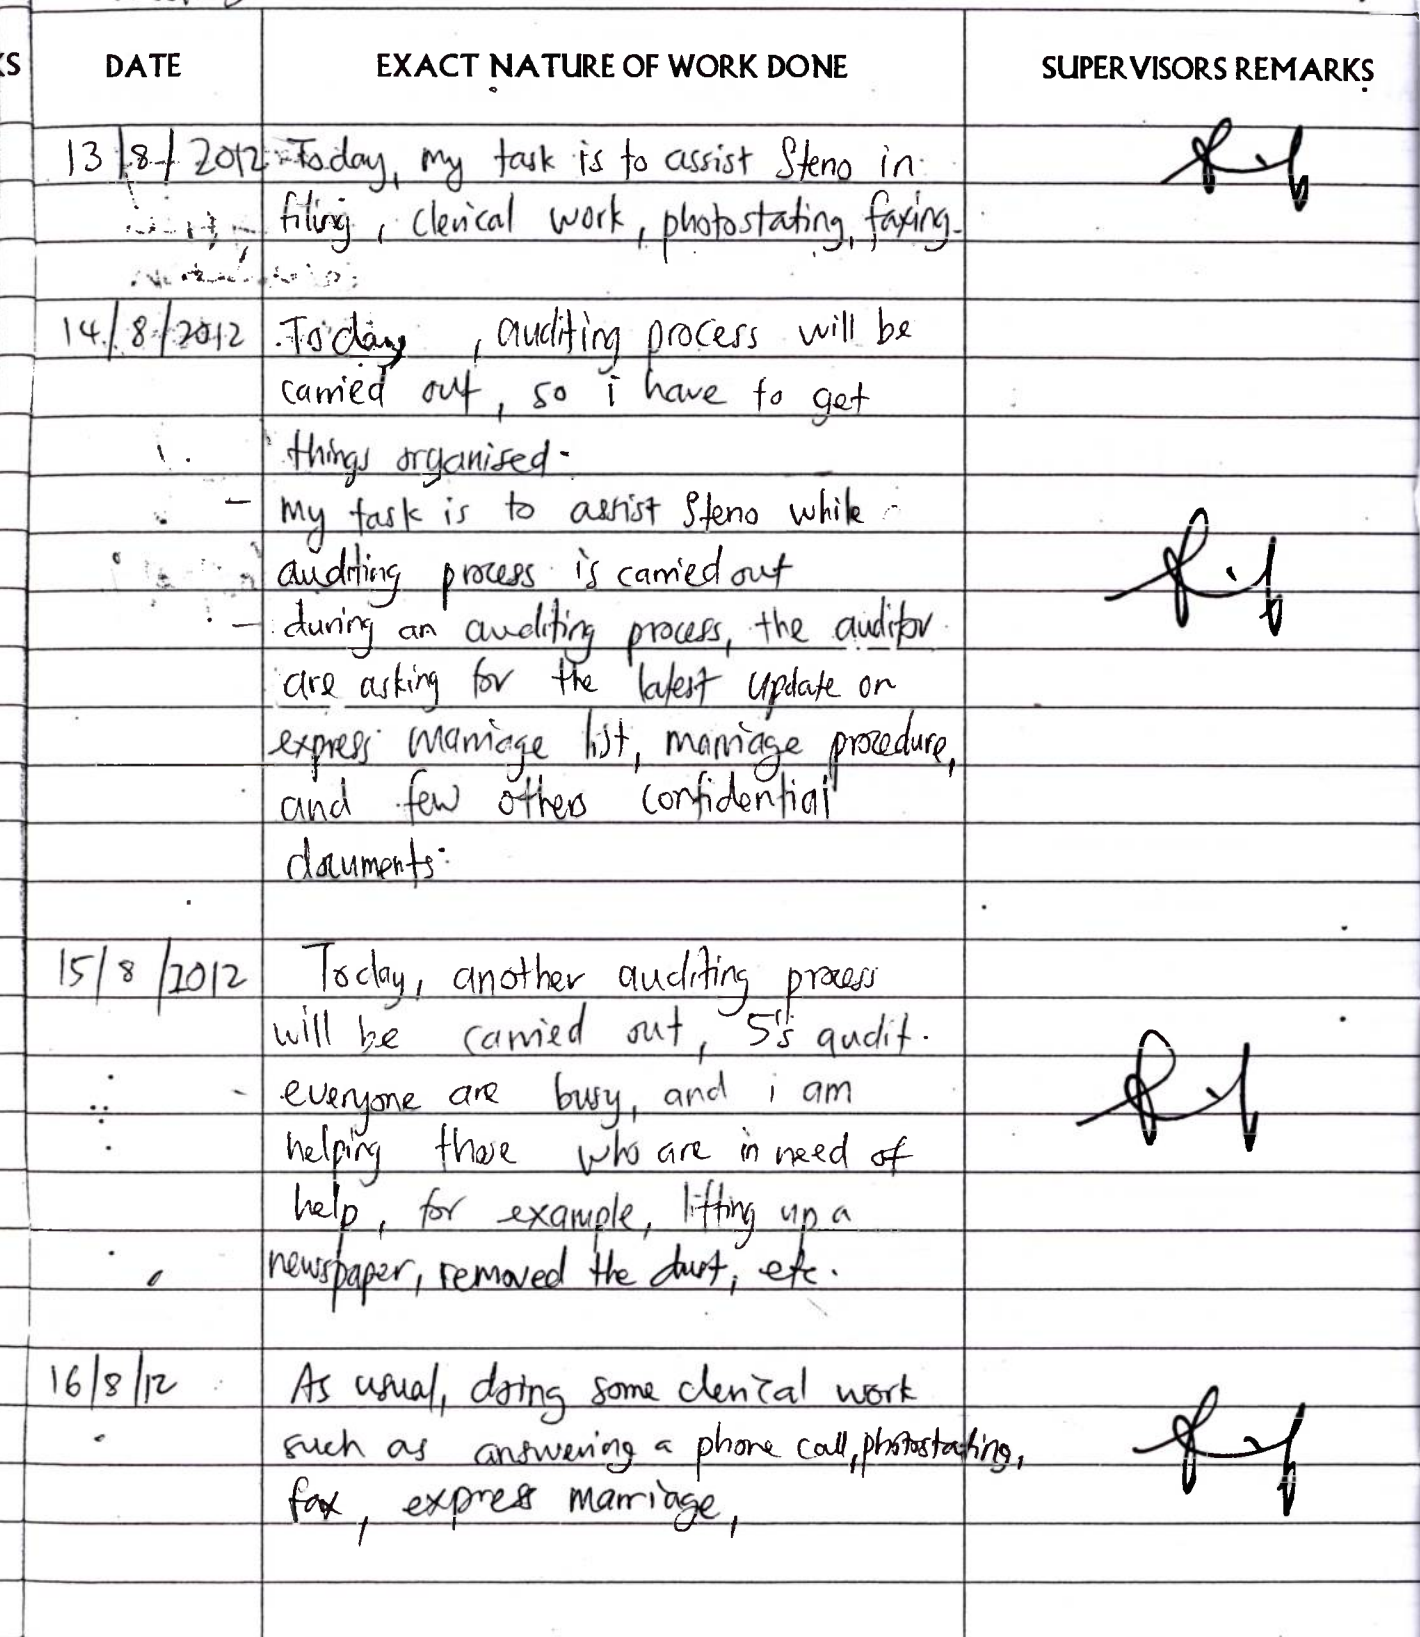 KS DATE EXACT NATURE OF WORK DONE SUPERVISORS REMARKS
13/8/2012 Today, my task is to assist Steno in
filing, clerical work, photostating, faxing.
14/8/2012 Today, auditing process will be
carried out, so i have to get
things organised.
- my task is to assist Steno while
auditing process is carried out
- during an auditing process, the auditor
are asking for the latest update on
express marriage list, marriage procedure,
and few others confidential
documents.
15/8/2012 Today, another auditing process
will be carried out, 5's audit.
- everyone are busy, and i am
helping those who are in need of
help, for example, lifting up a
newspaper, removed the dust, etc.
16/8/12 As usual, doing some clerical work
such as answering a phone call, photostating,
fax, express marriage,